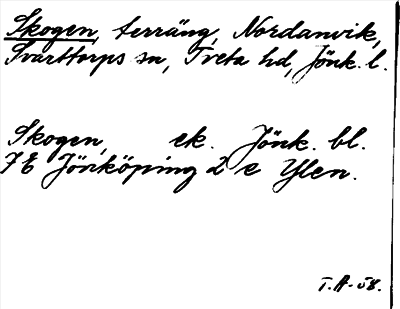 Skogen, terräng, Nordanvik,
Svarttorps sn, Tveta hd, Jönk. l.
Skogen, ek. Jönk. bl.
7 E Jönköping 2 e Ylen.
T.A.-58.